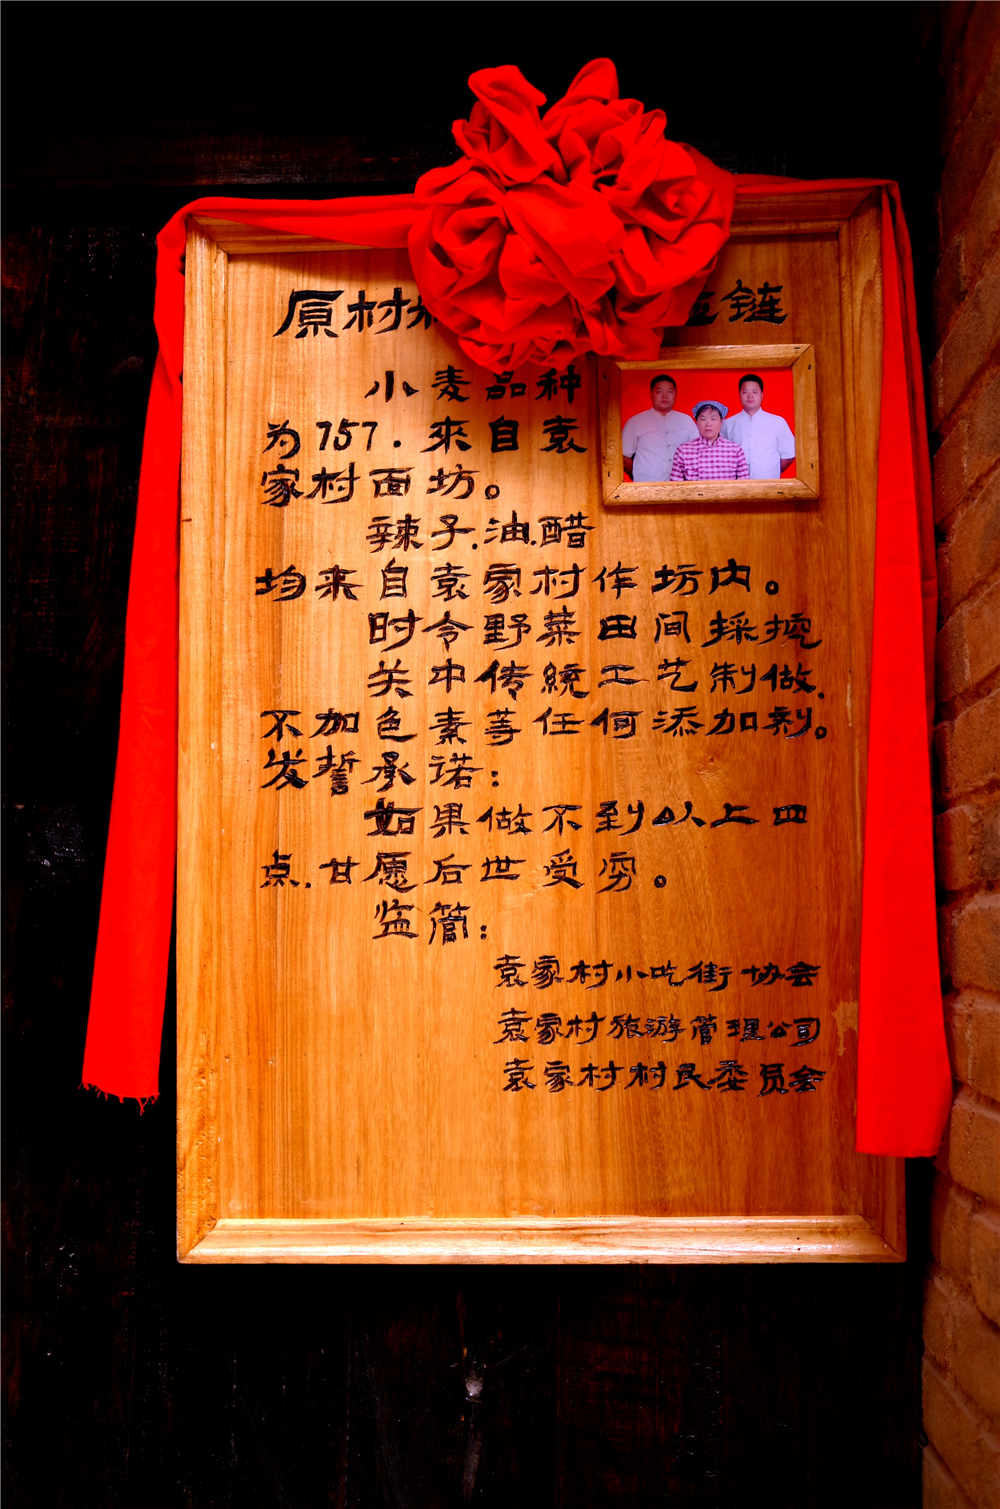 原村 链
小麦品种
为757.来自袁
家村面坊。
辣子.油.醋
均来自袁家村作坊内。
时令野菜田间採挖
关中传統工艺制做.
不加色素等任何添加剂。
发誓承诺:
如果做不到以上四
点.甘愿后世受穷。
监管:
袁家村小吃街协会
袁家村旅游管理公司
袁家村村民委员会